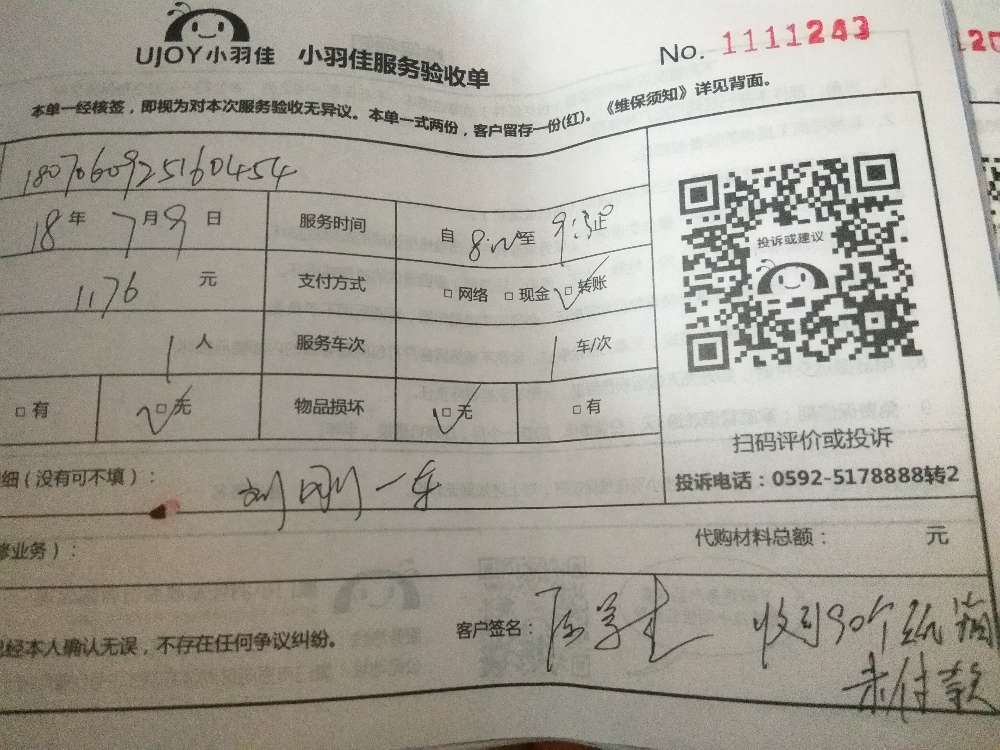 UJOY小羽佳 小羽佳服务验收单 No. 1111243
本单一经核签，即视为对本次服务验收无异议。本单一式两份，客户留存一份(红)。《维保须知》详见背面。
1807060925160454
18年 7月9日 服务时间 自 8:00 至
1176 元 支付方式 □网络 □现金 □转账
1 人 服务车次 1 车/次
□有 □无 物品损坏 □无 □有
投诉或建议
扫码评价或投诉
投诉电话：0592-5178888转2
细（没有可不填）：
刘刚一车
修业务）： 代购材料总额： 元
已经本人确认无误，不存在任何争议纠纷。 客户签名： 收到90个纸箱
未付款